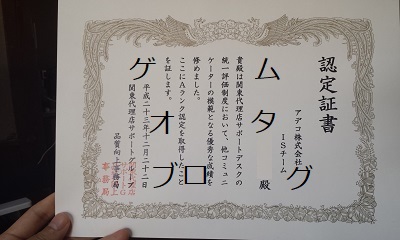 認定証書
アデコ株式会社
ISチーム
ムタ グ 殿
貴殿は関東代理店サポートデスクの
統一評価制度において、他コミュニ
ケーターの模範となる優秀な成績を
修めました。
ここにAランク認定を取得したこと
を証します。
平成二十三年十二月二十二日
関東代理店サポートグループ
品質向上事務局
ゲオブログ